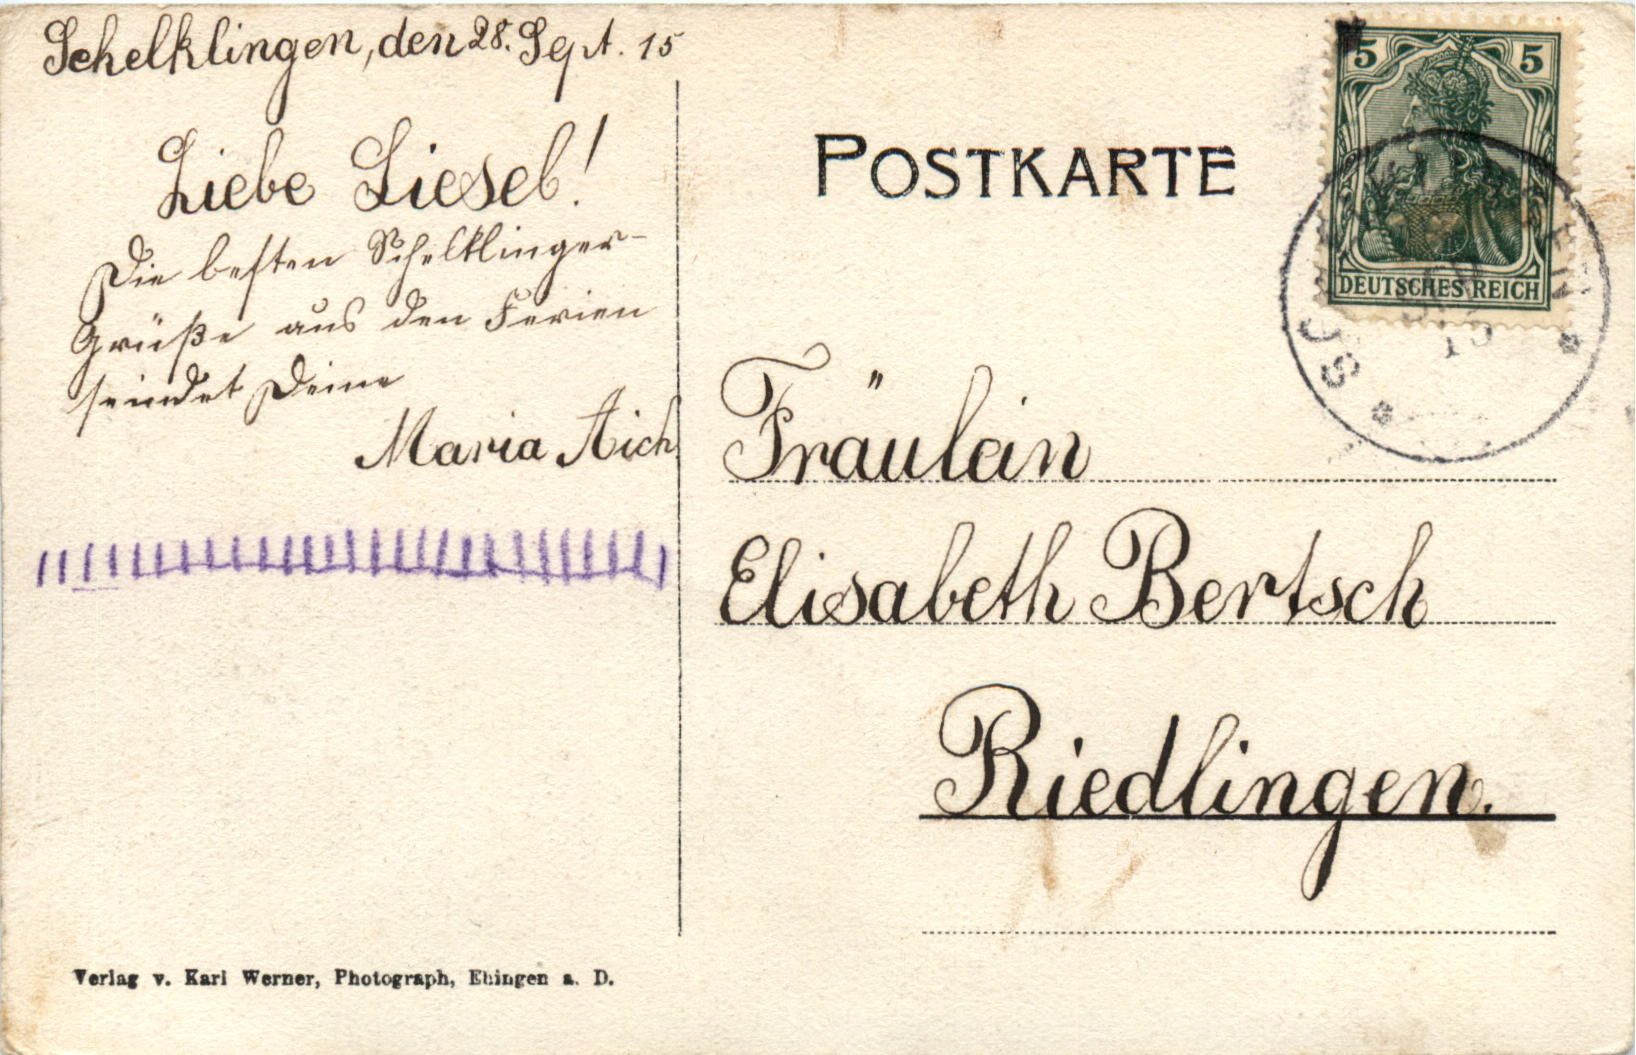 Schelklingen, den 28. Sept. 15
Liebe Liesel!
Die besten Schelklinger-
Grüße aus den Ferien
sendet Deine
Maria Aich
Verlag v. Karl Werner, Photograph, Ehingen a. D.
POSTKARTE
5 5
DEUTSCHES REICH
15
Fräulein
Elisabeth Bertsch
Riedlingen.